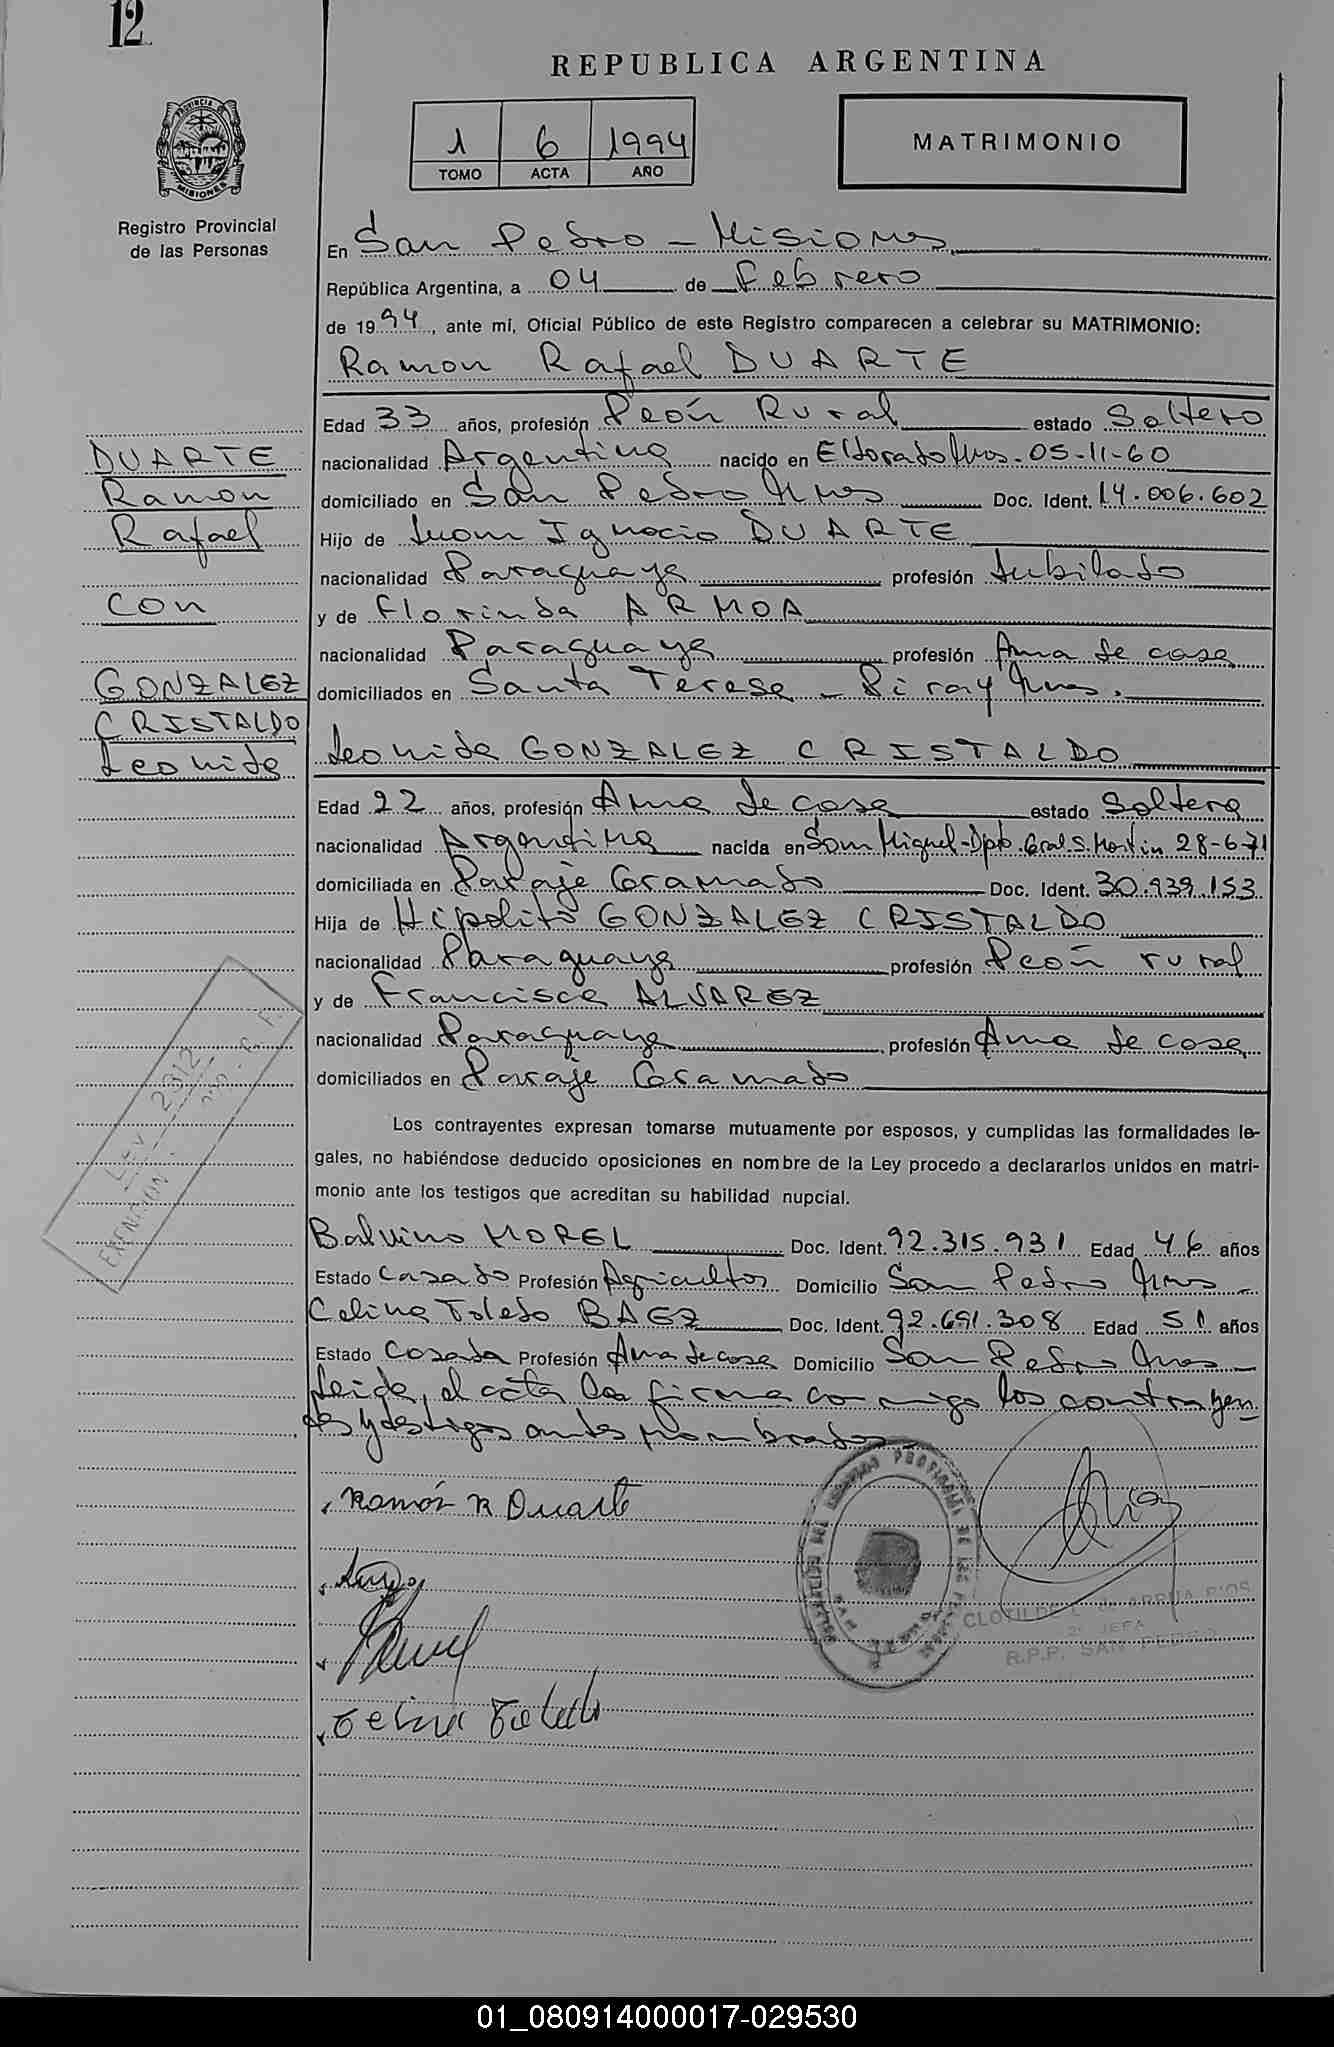 12
REPUBLICA ARGENTINA
1 6 1994
TOMO ACTA AÑO
MATRIMONIO
PROVINCIA DE MISIONES
Registro Provincial
de las Personas
En San Pedro - Misiones
República Argentina, a 04 de Febrero
de 1994, ante mí, Oficial Público de este Registro comparecen a celebrar su MATRIMONIO:
Ramon Rafael DUARTE
Edad 33 años, profesión Peón Rural estado Soltero
nacionalidad Argentina nacido en Eldorado Mnes. 05-11-60
domiciliado en San Pedro Mnes Doc. Ident. 14.006.602
Hijo de Juan Ignacio DUARTE
nacionalidad Paraguaya profesión Jubilado
y de Florinda ARMOA
nacionalidad Paraguaya profesión Ama de casa
domiciliados en Santa Teresa - Piray Mnes.
DUARTE
Ramon
Rafael
con
GONZALEZ
CRISTALDO
Leonida
Leonida GONZALEZ CRISTALDO
Edad 22 años, profesión Ama de casa estado Soltera
nacionalidad Argentina nacida en San Miguel-Dpto. Gral. S. Martin 28-6-71
domiciliada en Paraje Gramado Doc. Ident. 30.939.153
Hija de Hipolito GONZALEZ CRISTALDO
nacionalidad Paraguaya profesión Peón rural
y de Francisca ALVAREZ
nacionalidad Paraguaya profesión Ama de casa
domiciliados en Paraje Gramado
LEY 2312
EXENCION
Los contrayentes expresan tomarse mutuamente por esposos, y cumplidas las formalidades le-
gales, no habiéndose deducido oposiciones en nombre de la Ley procedo a declararlos unidos en matri-
monio ante los testigos que acreditan su habilidad nupcial.
Balvino MOREL Doc. Ident. 92.315.931 Edad 46 años
Estado Casado Profesión Agricultor Domicilio San Pedro Mnes
Celina Toledo BAEZ Doc. Ident. 92.691.308 Edad 51 años
Estado Casada Profesión Ama de casa Domicilio San Pedro Mnes
Leida, el acta la firma conmigo los contrayen-
tes y testigos antes nombrados
Ramón R Duarte
Celina Toledo
CLOTILDE de ARRUA RIOS
2° JEFA
R.P.P. SAN PEDRO
01_080914000017-029530